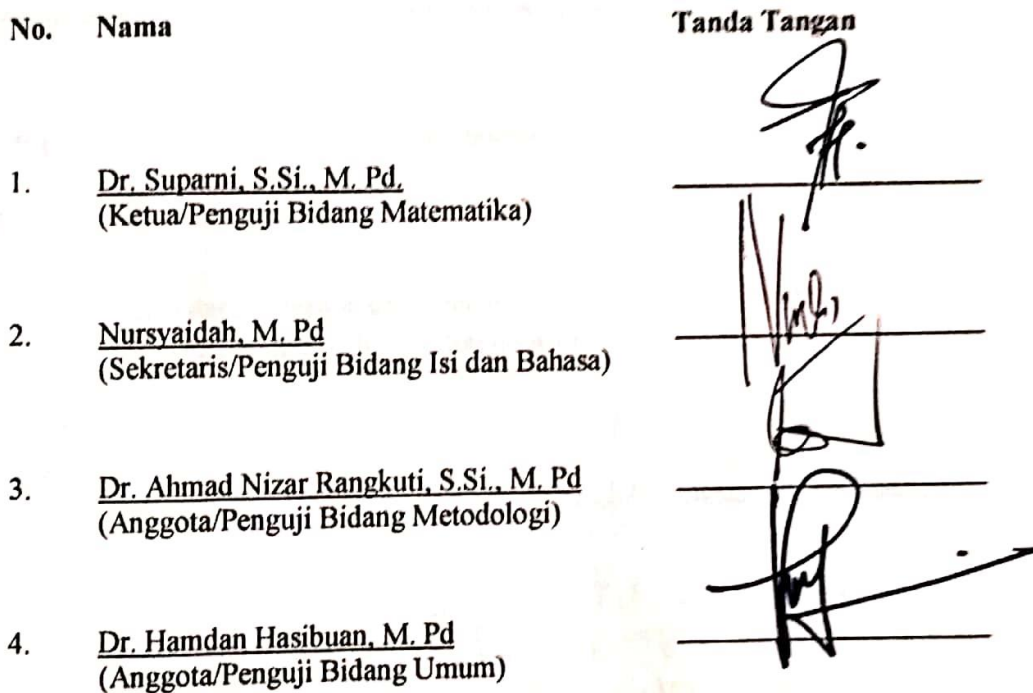 No. Nama Tanda Tangan
1. Dr. Suparni, S.Si., M. Pd.
(Ketua/Penguji Bidang Matematika)
2. Nursyaidah, M. Pd
(Sekretaris/Penguji Bidang Isi dan Bahasa)
3. Dr. Ahmad Nizar Rangkuti, S.Si., M. Pd
(Anggota/Penguji Bidang Metodologi)
4. Dr. Hamdan Hasibuan, M. Pd
(Anggota/Penguji Bidang Umum)